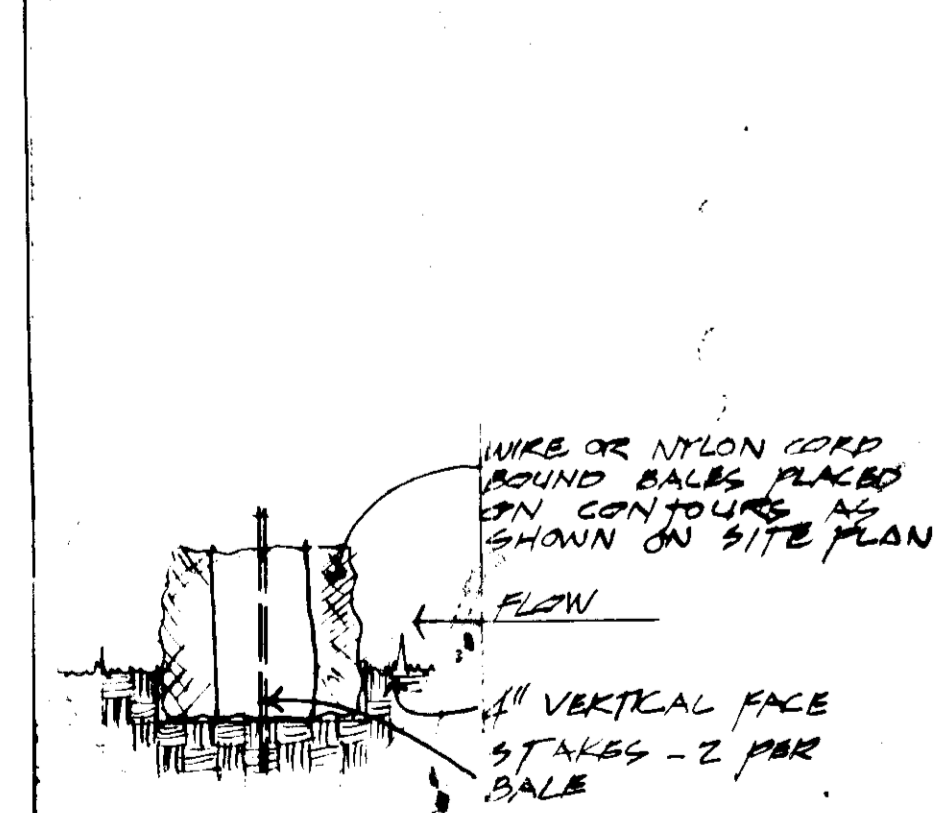 WIRE OR NYLON CORD
BOUND BALES PLACED
ON CONTOURS AS
SHOWN ON SITE PLAN
FLOW
4" VERTICAL FACE
STAKES - 2 PER
BALE